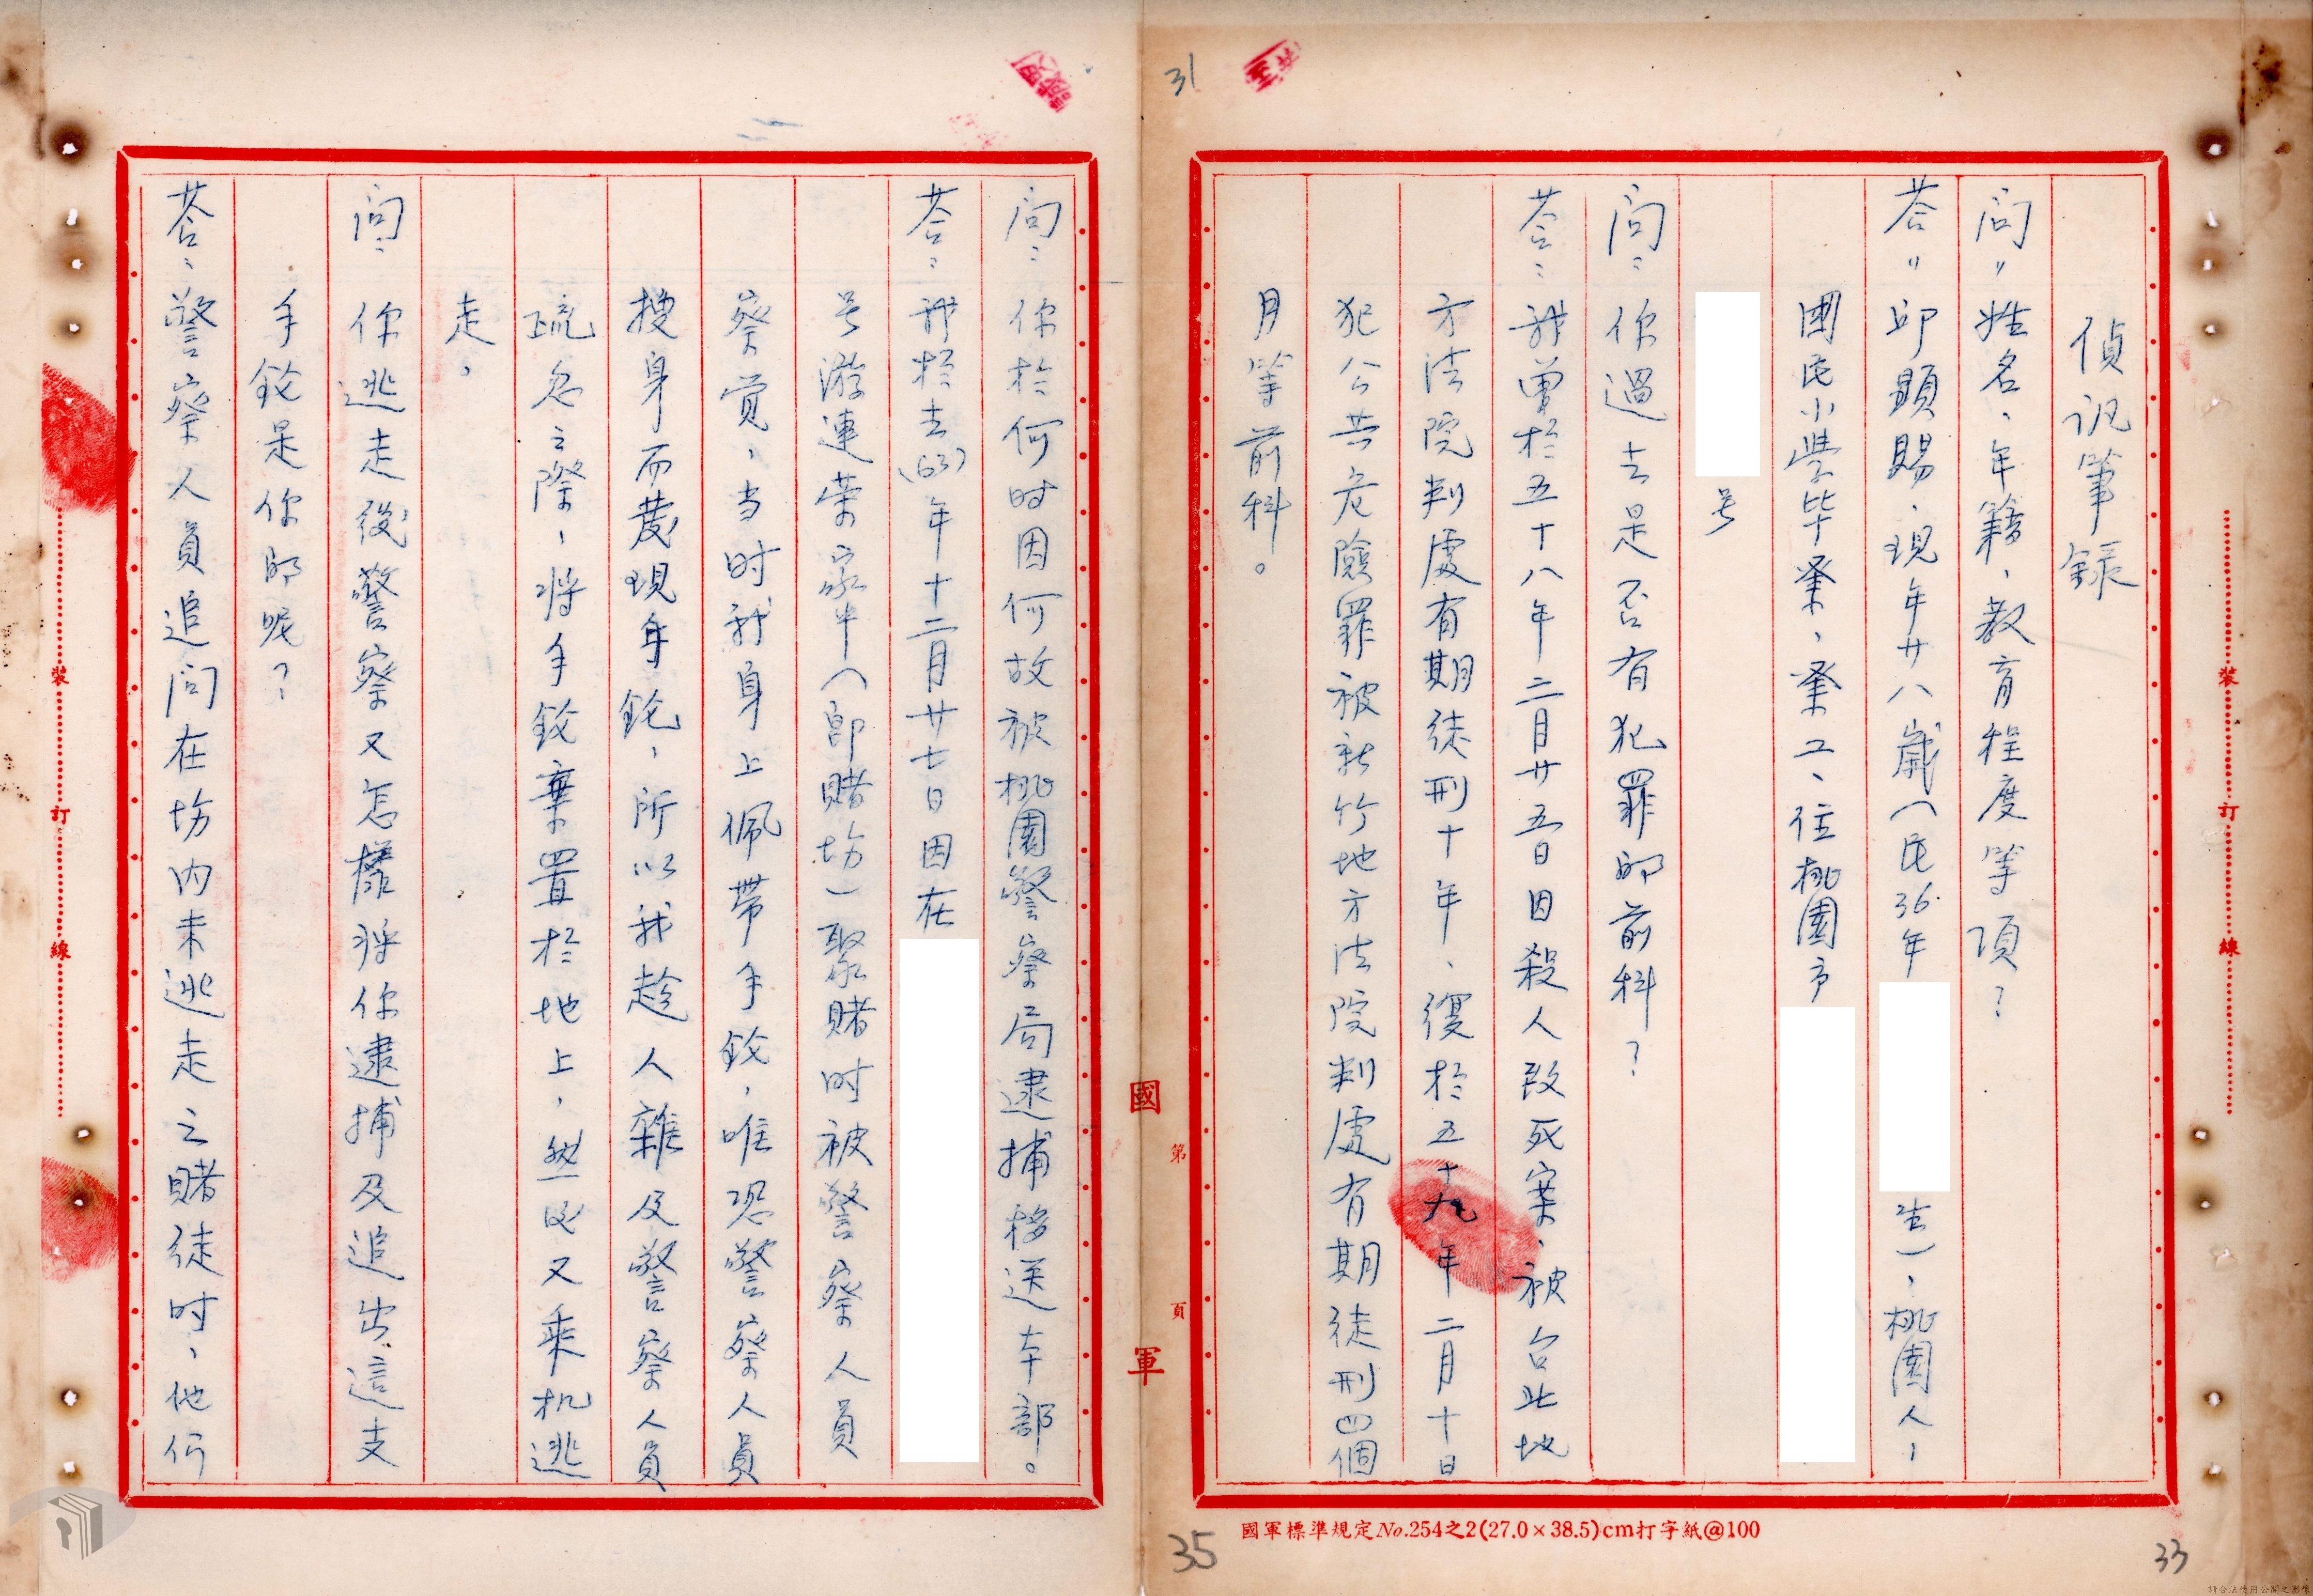 偵訊筆錄
問：姓名、年籍、教育程度等項？
荅：邱顯賜、現年廿八歲（民36年
生）、桃園人、
國民小學毕業、業工、住桃園市
号
問：你過去是否有犯罪的前科？
荅：我曾於五十八年二月廿五日因殺人致死案、被台北地
方法院判處有期徒刑十年、復於五十九年二月十日
犯公共危險罪被新竹地方法院判處有期徒刑四個
月等前科。
問：你於何时因何故被桃園警察局逮捕移送本部。
荅：我於去(63)年十二月廿七日因在
号游連荣家中（即賭坊）聚賭时被警察人員
察覚，当时我身上佩帶手鈗，唯恐警察人員
搜身而發現手鈗、所以我趁人雜及警察人員
疏忽之際、將手鈗棄置於地上，然后又乘机逃
走，
問：你逃走後警察又怎樣將你逮捕及追出這支
手鈗是你的呢？
荅：警察人員追問在坊内未逃走之賭徒时、他们
31
35
33
國軍
第 頁
裝訂線
裝訂線
國軍標準規定No.254之2(27.0×38.5)cm打字紙@100
請合法使用公開之影像